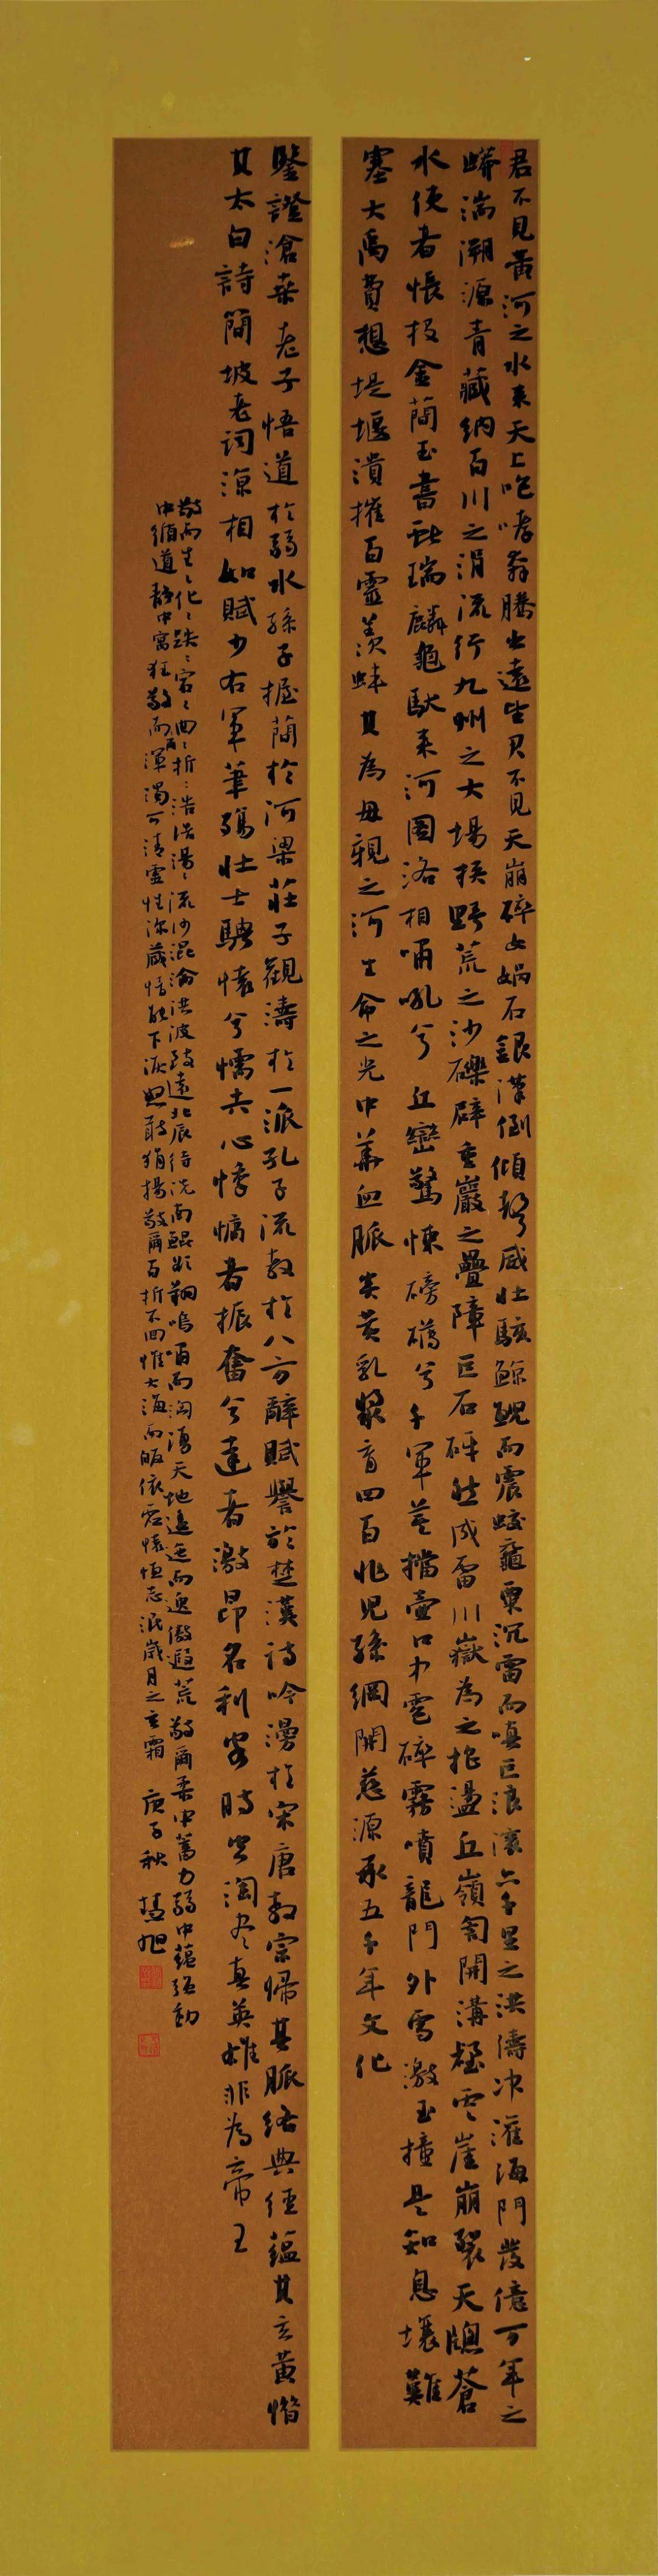 君不見黃河之水來天上咆哮奔騰出遠生君不見天崩碎女媧石銀漢倒傾聲威壯駭鯨鯢而震蛟鼉栗沉雷而嗔巨浪滾六千里之洪濤沖灌海門發億万年之
蟒湍溯源青藏納百川之涓流行九州之大場挾野荒之沙礫辟重巖之疊障巨石砰然成雷川嶽為之搖盪丘嶺匉開溝壑雲崖崩裂天牕蒼
水使者悵投金蕳玉書酬瑞麟龜馱來河圖洛相哺吼兮丘巒驚悚磅礡兮千軍莫擋壺口中雹碎霧噴龍門外雪激玉撞是知息壤難
塞大禹費想堤堰潰摧百靈羨蚌其為母親之河生命之光中華血脈炎黃乳漿育四百兆兒孫綱開慈源承五千年文化
鑒證滄桑老子悟道於弱水孫子握蕳於河梁莊子觀濤於一派孔子流教於八方辭賦譽於楚漢詩吟漫於宋唐教宗歸其脈絡典經蘊其玄黃惜
其太白詩簡坡老詞涼相如賦少右軍筆殤壯士騁懷兮懦夫心悸惰者振奮兮達者激昂名利客時空淘尽真英雄非為帝王
敬而生生化化跌跌宕宕曲曲折折浩浩湯湯流沙混淪洪波致遠北辰待洗南鯤欲翱嗚咽而洶湧天地逼迮而逸傲遐荒敬爾柔中蓄力弱中蘊强動
中循道靜中寓狂敬而渾濁可清靈性深藏情能下淚興敢狷揚敬爾百折不回惟大海而皈依雲懷恒志泯歲月之玄霜 庚子秋 慧旭